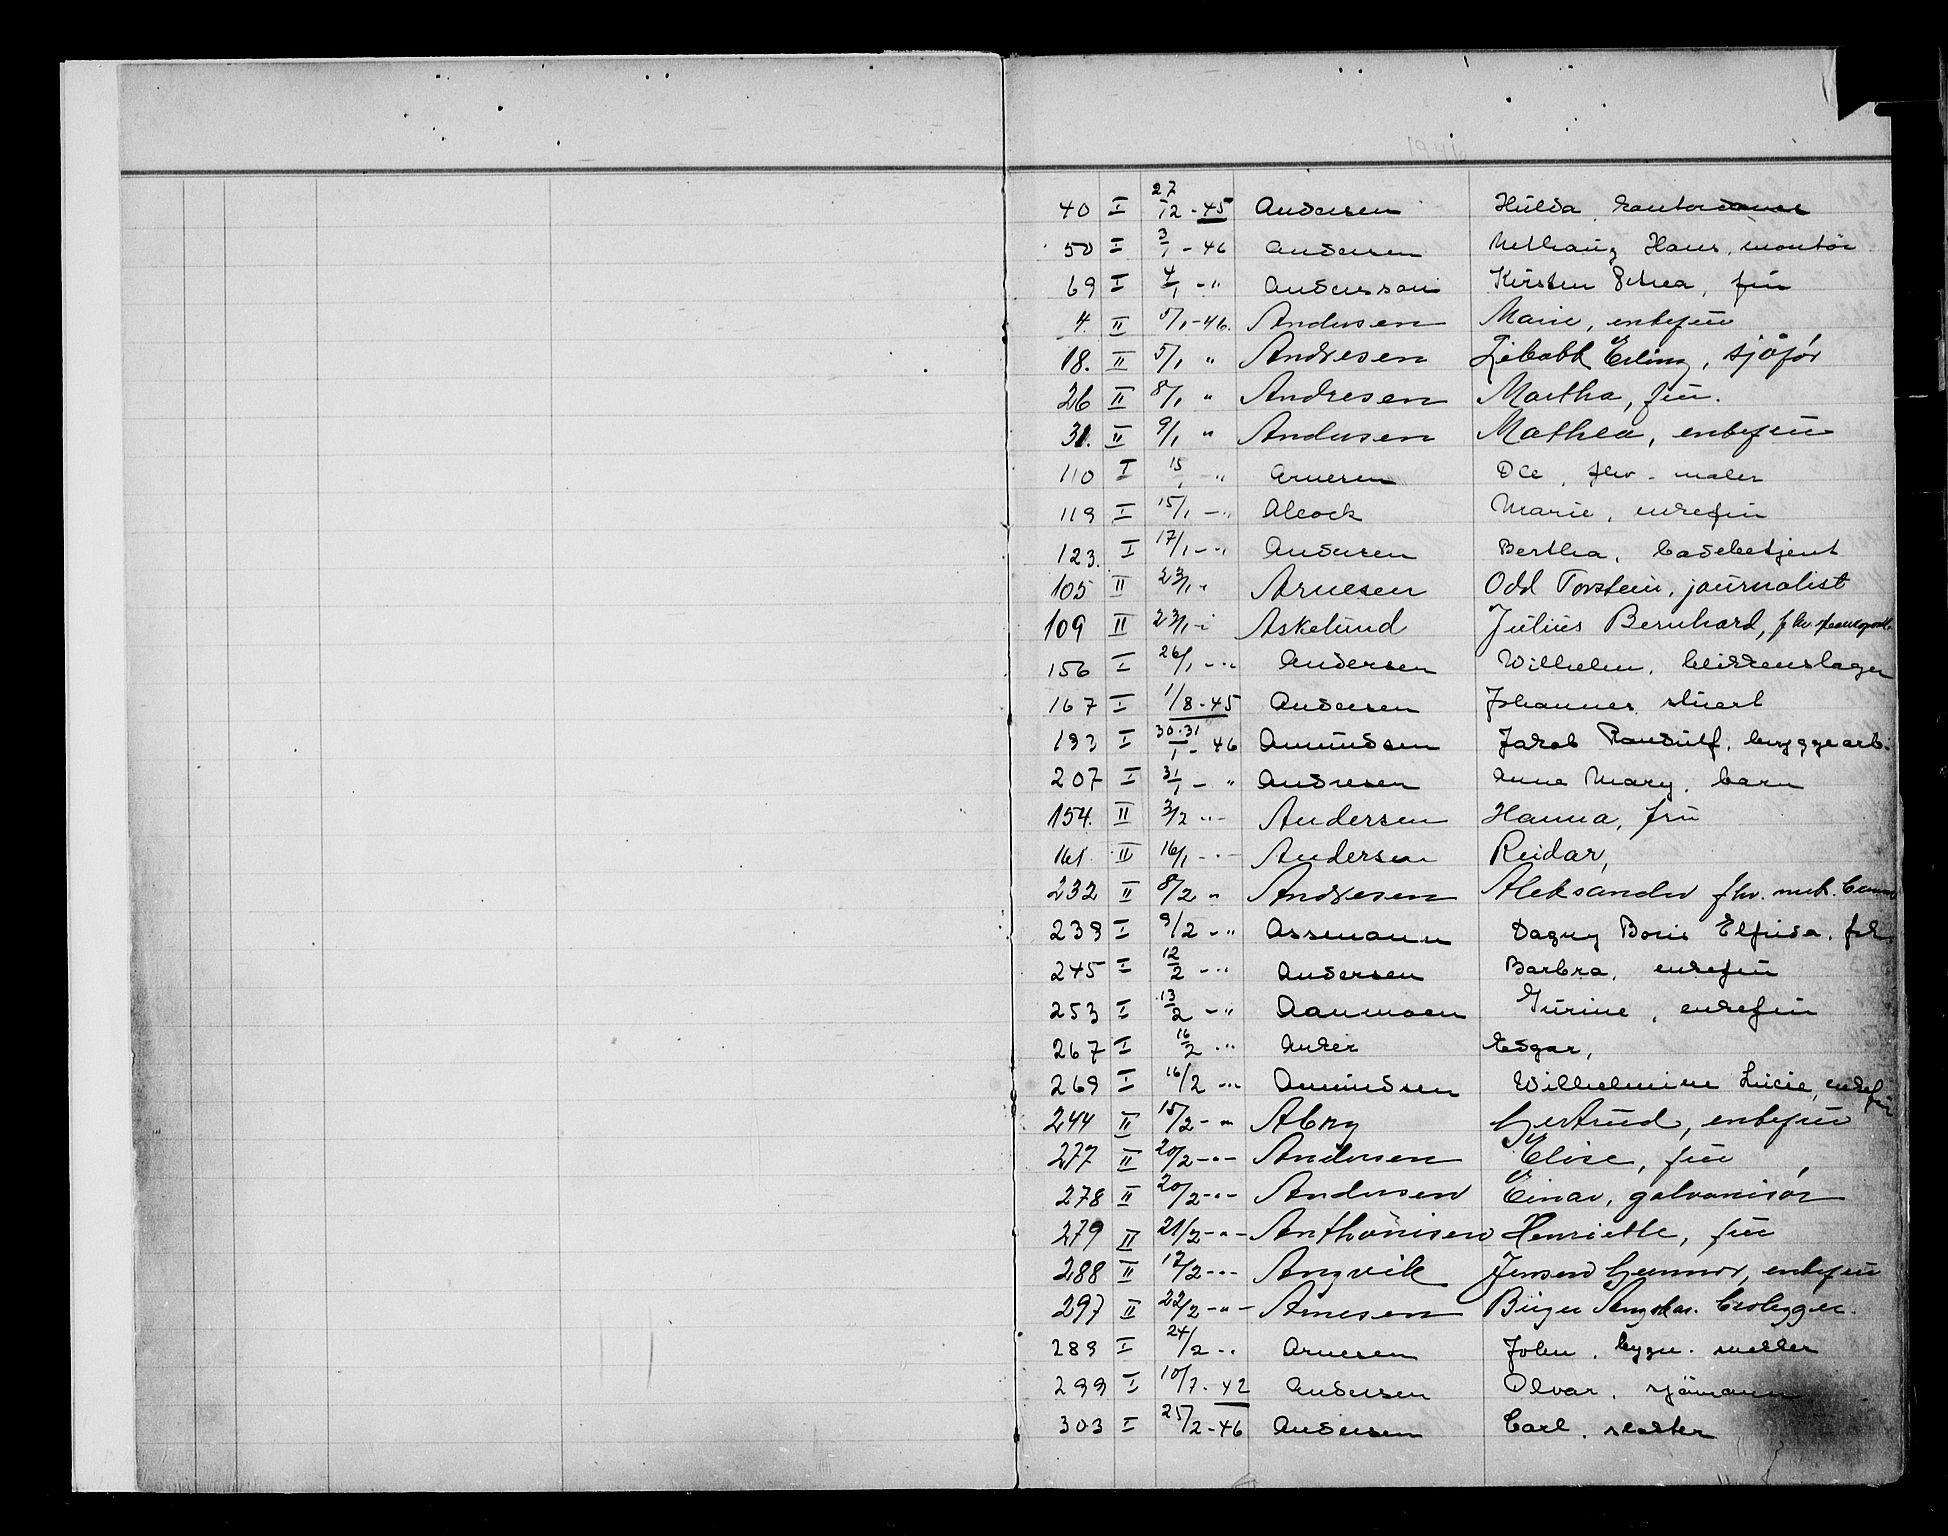 40 I 27/12-45 Andersen Hulda, kontordame
50 I 3/1-46 Andersen Hans, montör
69 I 4/1-" Anderssen Kirsten Petrea, frü
4. II 5/1-46. Andersen Marie, enkefrü
18. II 5/1 " Andresen Erling, sjåför
26 II 8/1 " Andresen Martha, frü.
31. II 9/1 " Andersen Mathea, enkefrü
110 I 15/1 " Arnesen Ole, fhv. maler
119 I 15/1-" Alcock Marie, enkefrü
123. I 17/1-" Andersen Bertha, badebetjent
105 II 23/1 " Arnesen Odd Torstein, journalist
109 II 23/1-" Askelund Julius Bernhard, fhv.
156 I 26/1-" Andersen Wilhelm, blikkenslager
167 I 1/8-45 Andersen Johannes, stuert
193 I 30-31/1-46 Amundsen Jakob Randulf, bryggearb.
207 I 31/1-" Andresen Anne Mary, barn
154. II 3/2-" Andersen Hanna, frü
161 II 16/1-" Andersen Reidar,
232 II 8/2 " Andresen Aleksander fhv.
239 I 9/2-" Assmann Dagny Elfrida,
245 I 12/2-" Andersen Barbra, enkefrü
253 I 13/2-" Aanmoen Gurine, enkefrü
267 I 16/2-" Anker Edgar,
269 I 16/2-" Amundsen Wilhelmine Lucie, enkefrü
244 II 15/2-" Abry Gertrud, enkefrü
277 II 20/2-"- Andersen Elise, frü
278 II 20/2-"- Andersen Einar, galvanisør
279 II 21/2-"- Anthonisen Henriette, frü
288 II 17/2-"- Angvik Jensen Gunnor, enkefrü
297 II 22/2-"- Arnesen Birger Ansgar. brolegger.
289 I 24/2-" Arnesen John, bygn. mester
299 I 10/7-42 Andersen Olvar, sjömann
303 I 25/2-46 Andersen Carl,